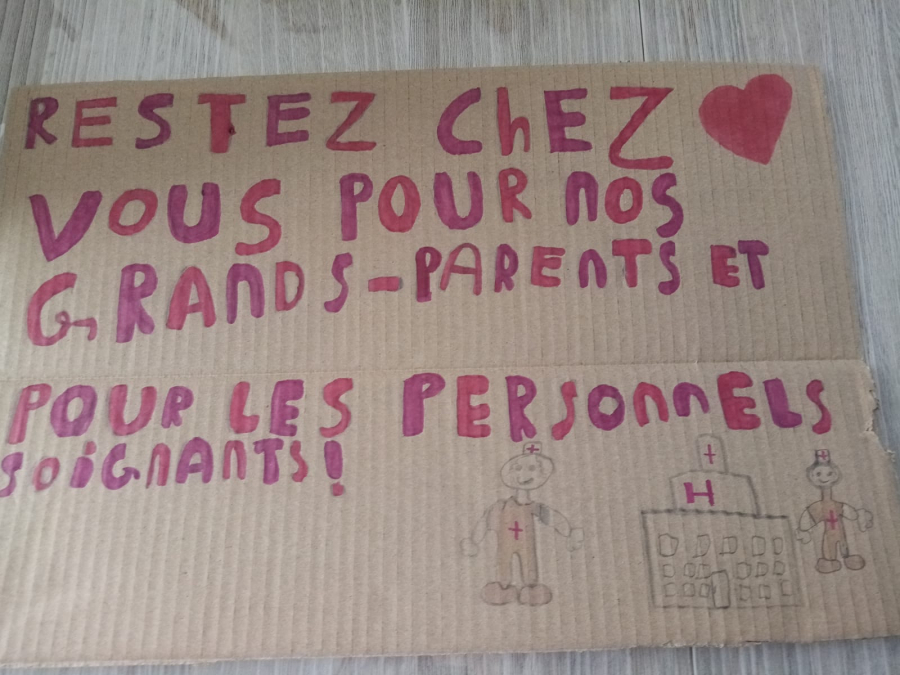 RESTEZ ChEZ
VOUS POUR nOS
GRAnDS-PAREnTS ET
POUR LES PERSOnnELS
SOiGnAnTS!
H